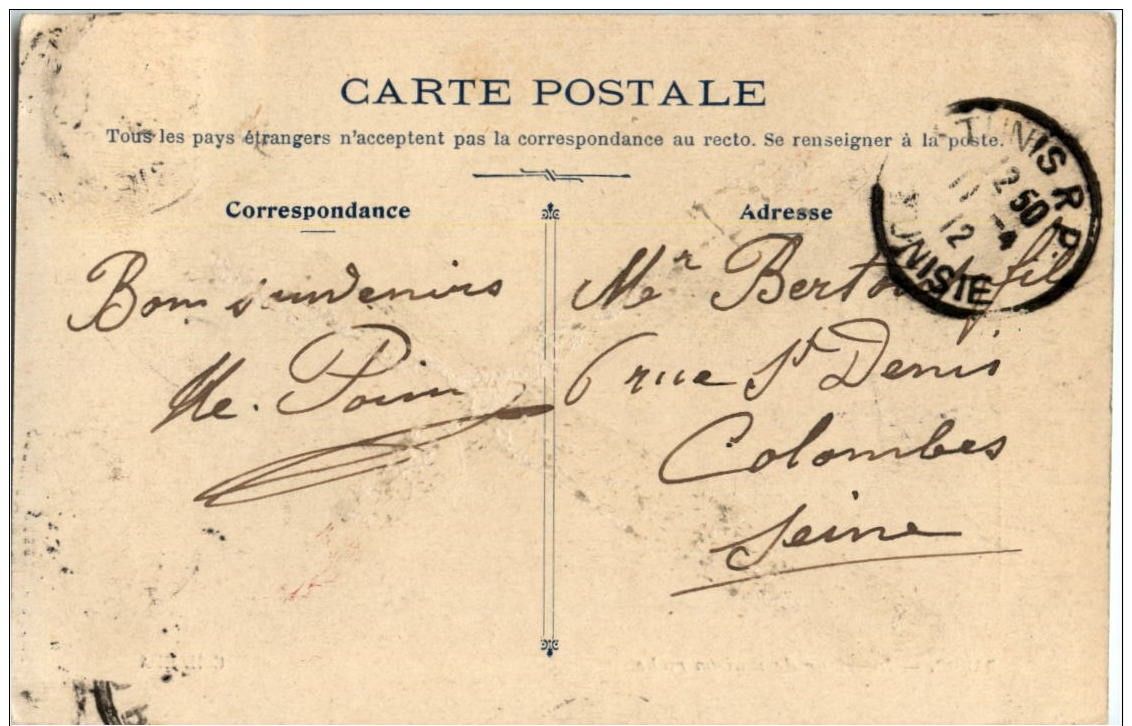 CARTE POSTALE
Tous les pays étrangers n'acceptent pas la correspondance au recto. Se renseigner à la poste.
Correspondance
Bons souvenirs
Adresse
Mr fils
6 rue St Denis
Colombes
Seine
TUNIS R.P.
12 50
11 -4
12
TUNISIE